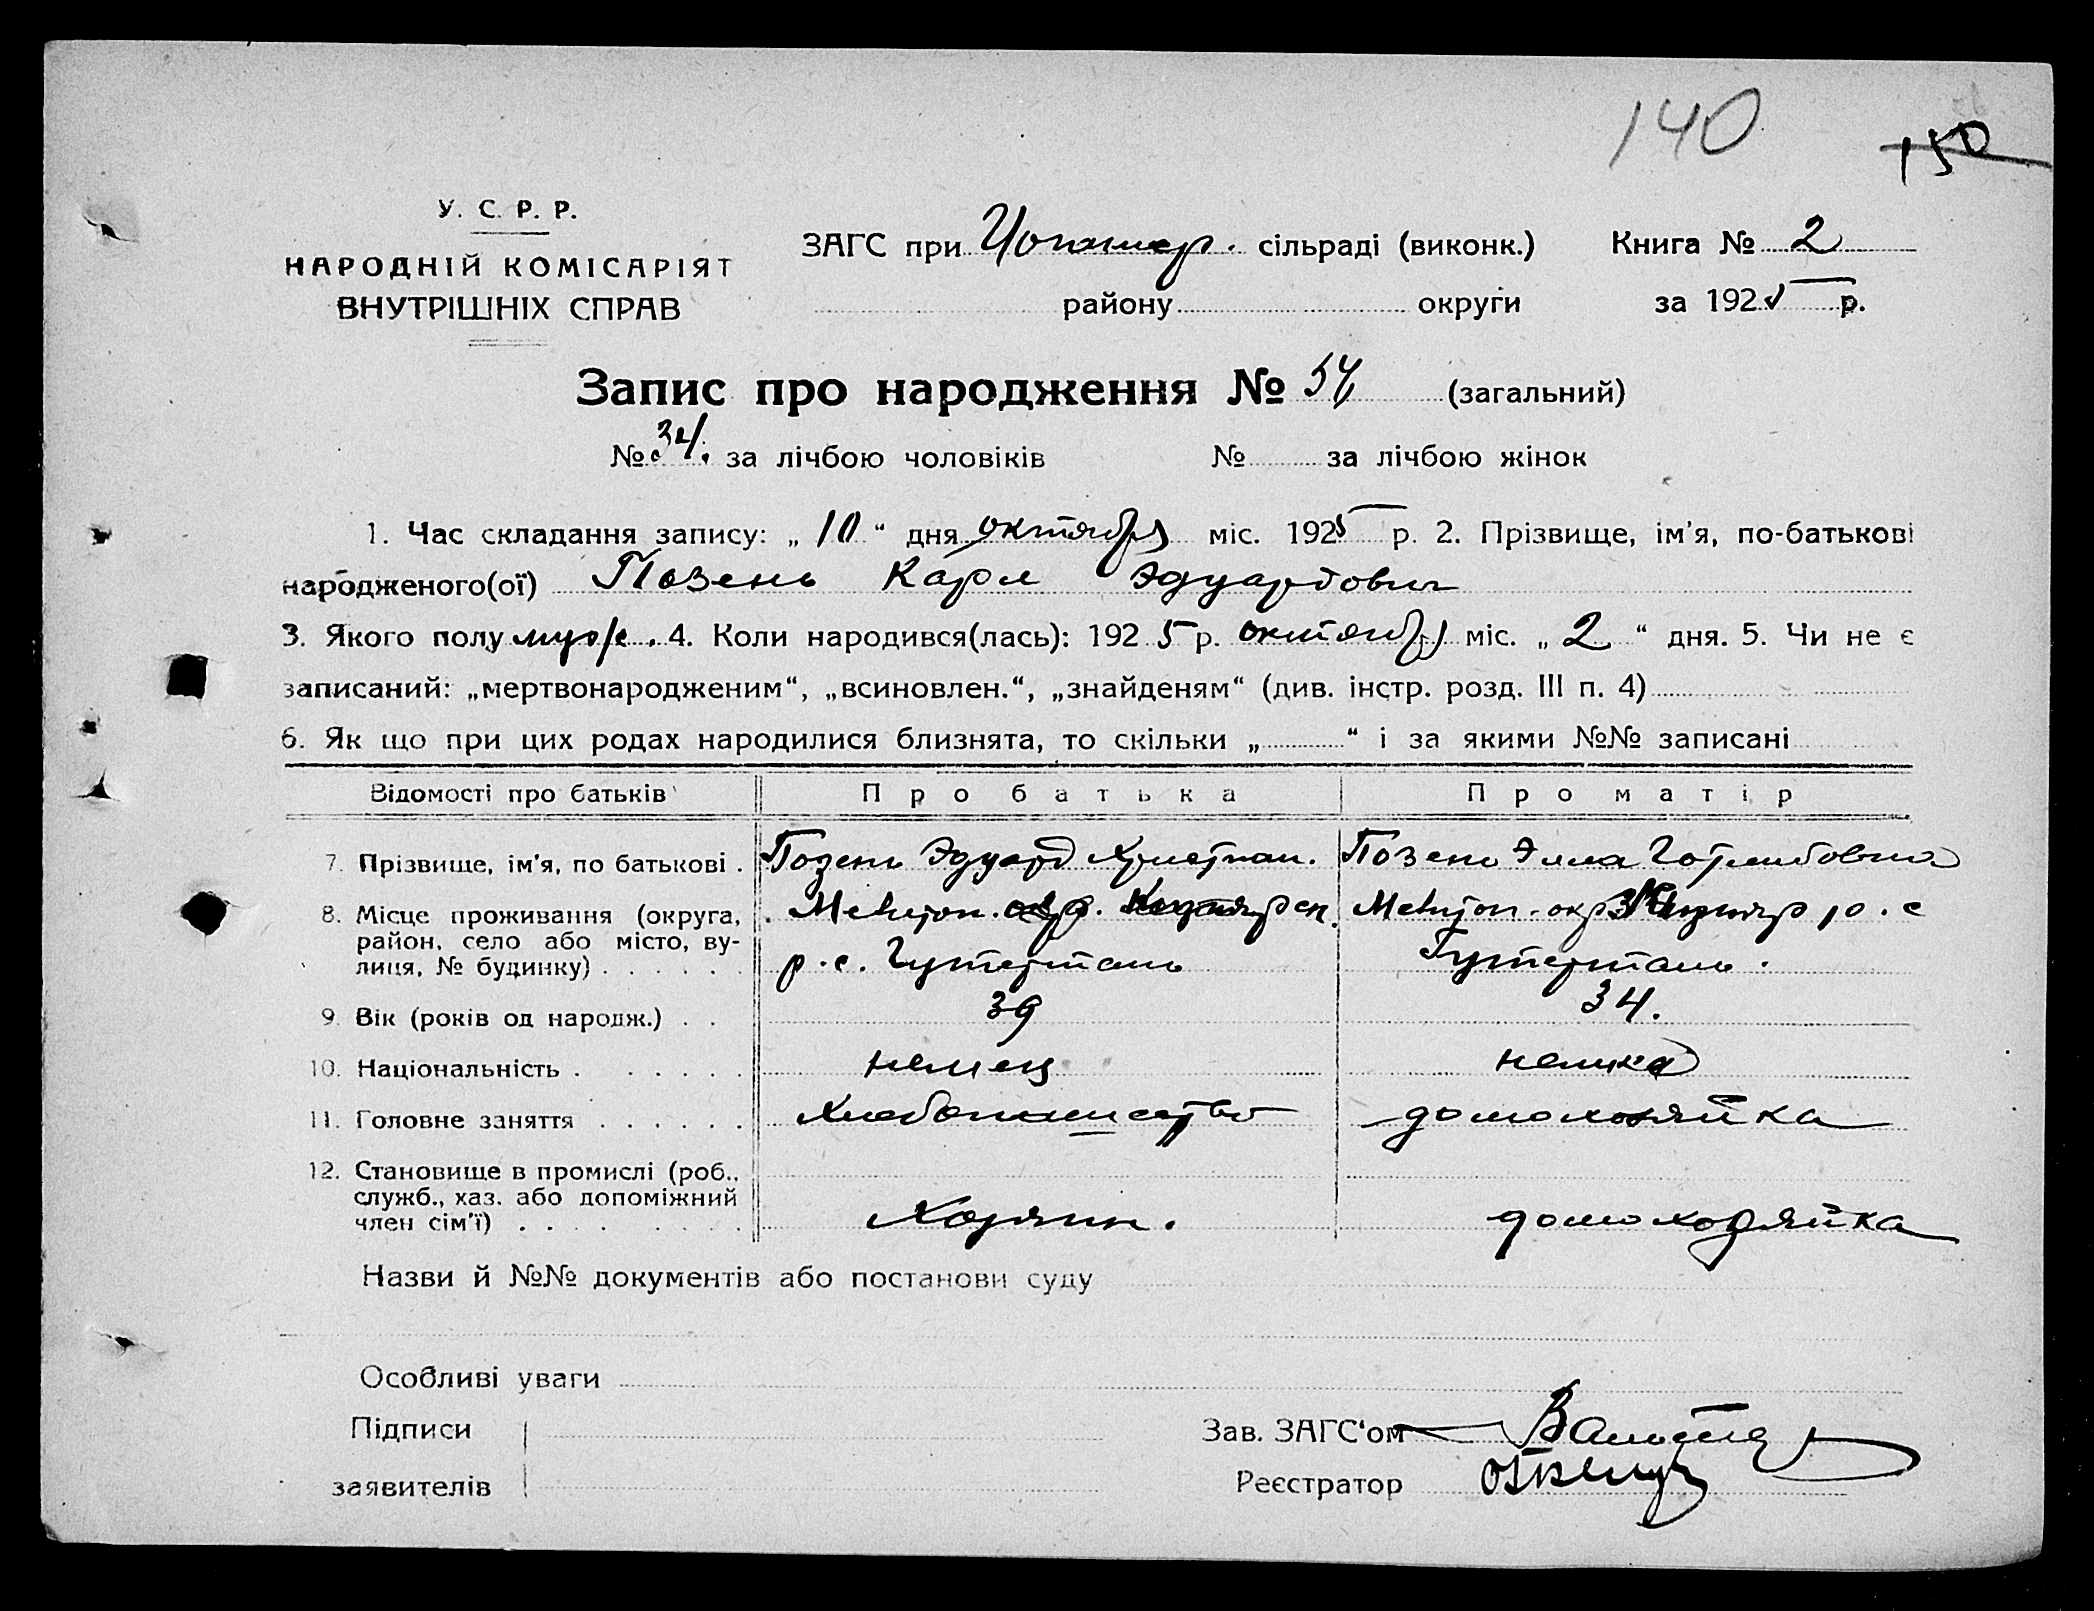 140
150
У. С. Р. Р.
НАРОДНІЙ КОМІСАРІЯТ
ВНУТРІШНІХ СПРАВ
ЗАГС при сільраді (виконк.) Книга № 2
району округи за 1925 р.
Запис про народження № 54 (загальний)
№ 34. за лічбою чоловіків № за лічбою жінок
1. Час складання запису: „ 10 “ дня октября міс. 1925 р. 2. Прізвище, ім'я, по-батькові
народженого(ої) Позень Карл Эдуардович
3. Якого полу муж. 4. Коли народився(лась): 1925 р. октября міс. „ 2 “ дня. 5. Чи не є
записаний: „мертвонародженим“, „всиновлен.“, „знайденям“ (див. інстр. розд. III п. 4)
6. Як що при цих родах народилися близнята, то скільки „ “ і за якими №№ записані
Відомості про батьків Про батька Про матір
7. Прізвище, ім'я, по батькові . Позень Эдуард Христиан. Позень Эмма Готлибовна
8. Місце проживання (округа, район, село або місто, вулиця, № будинку) Мелитоп. окр. р. с. Гутерталь Мелитоп. окр. р. с Гутерталь.
9. Вік (років од народж.) . . 39 34.
10. Національність . немец немка
11. Головне заняття хлебопашество домохозяйка
12. Становище в промислі (роб., служб., хаз. або допоміжний член сім'ї) Хозяин. домохозяйка
Назви й №№ документів або постанови суду
Особливі уваги
Підписи
заявителів
Зав. ЗАГС'ом
Реєстратор